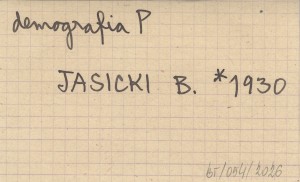 demografia P
JASICKI B. *1930
bT/054/2026